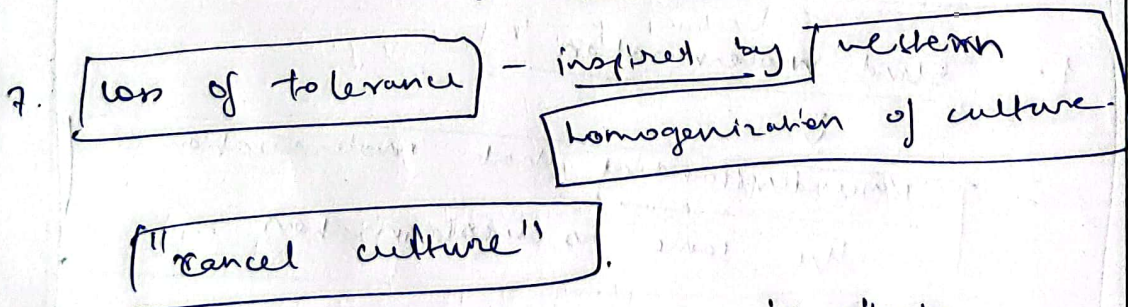 7. loss of tolerance - inspired by western
homogenization of culture.
"cancel culture".